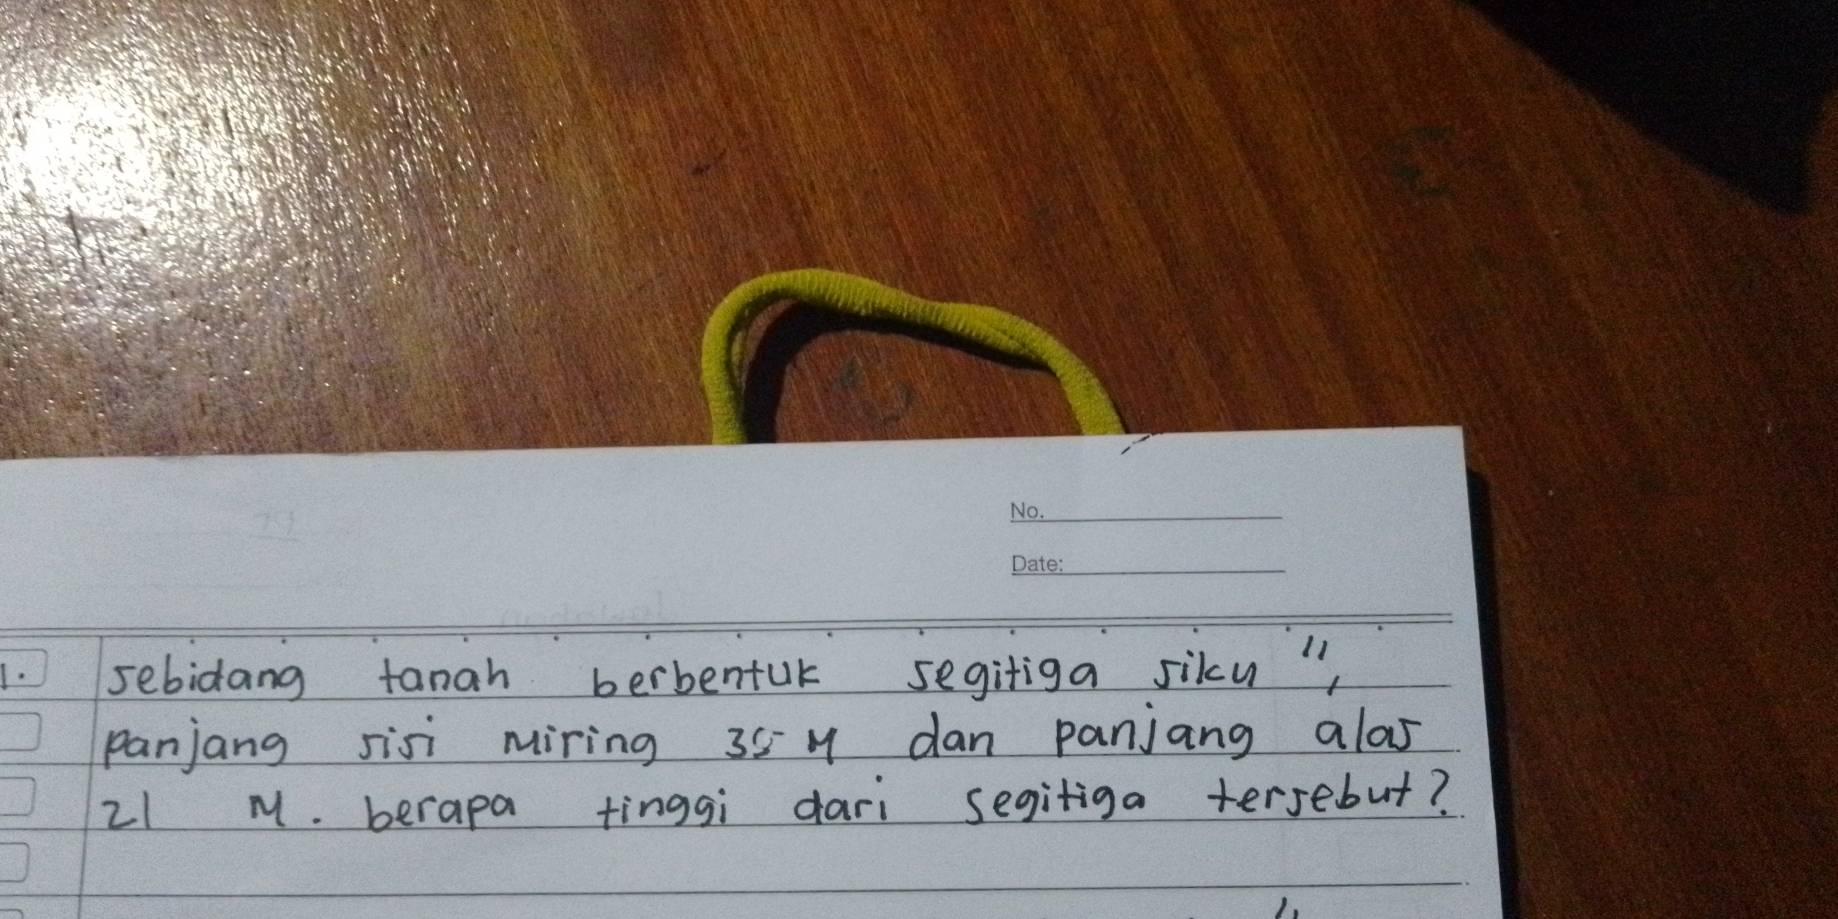 No.
Date:
1. sebidang tanah berbentuk segitiga siku",
panjang sisi miring 35 M dan panjang alas
21 M. berapa tinggi dari segitiga tersebut?